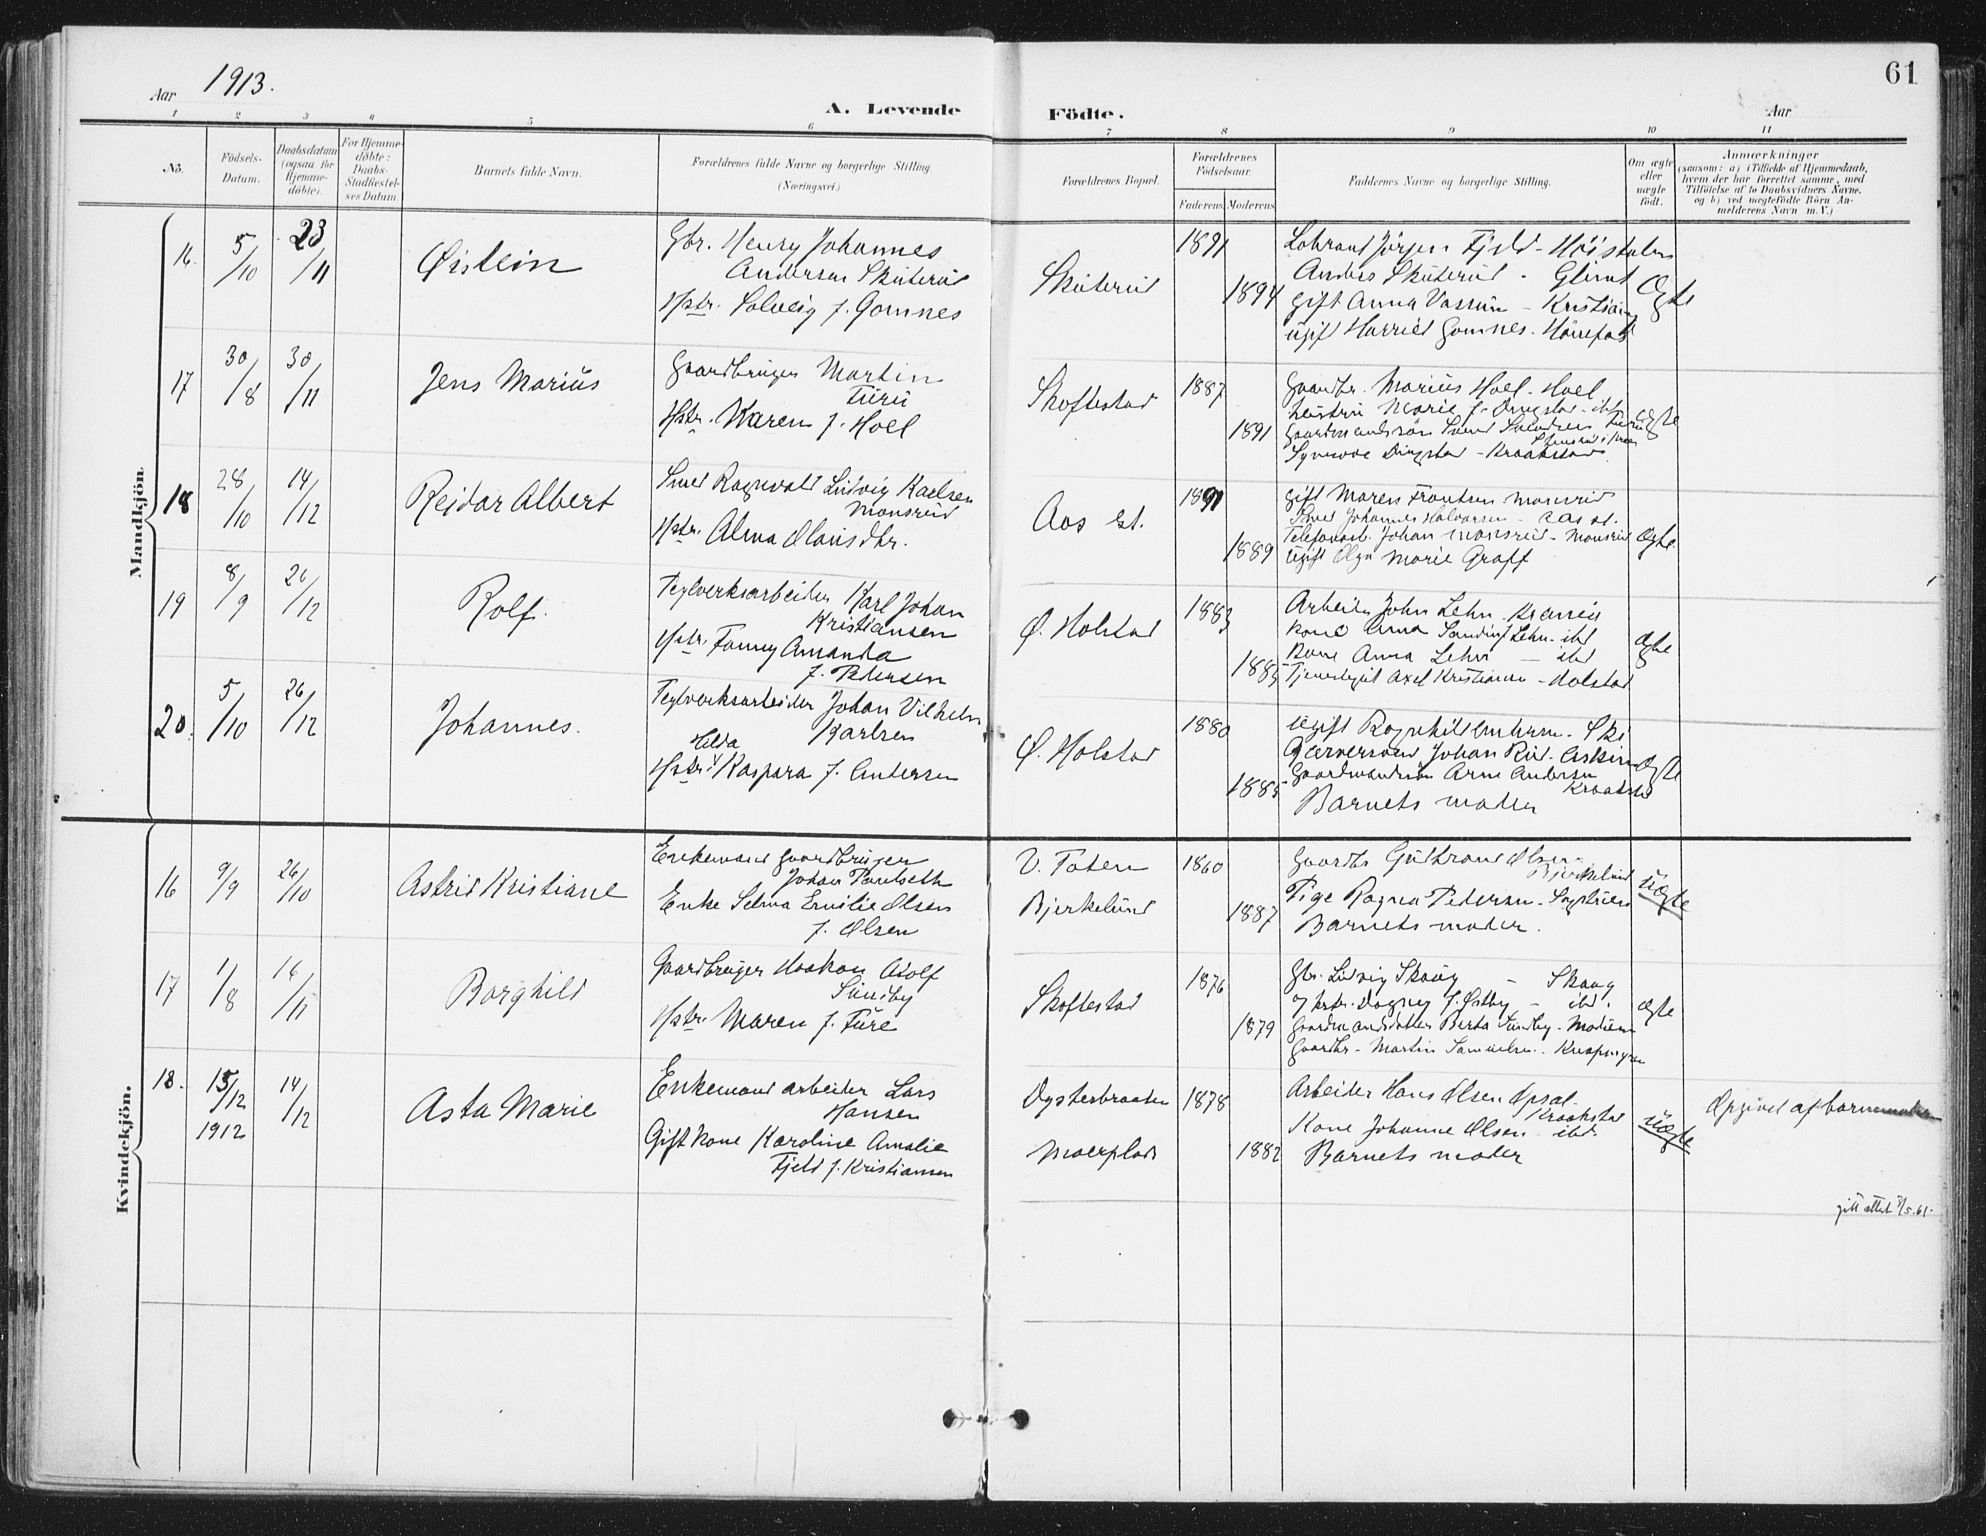 61
Aar 1913.
A. Levende Födte.
Aar
1 2 3 4 5 6 7 8 9 10 11
No.
Födsels-
Datum.
Daabsdatum
(ogsaa for
Hjemme-
döbte).
For Hjemme-
döbte:
Daabs-
Stadfæstel-
ses Datum.
Barnets fulde Navn.
Forældrenes fulde Navne og borgerlige Stilling.
(Næringsvei.)
Forældrenes Bopæl.
Forældrenes
Fødselsaar.
Faderens Moderens
Faddernes Navne og borgerlige Stilling.
Om ægte
eller
uægte
født.
Anmærkninger
(saasom: a) i Tilfælde af Hjemmedaab,
hvem der har forrettet samme, med
Tilføielse af to Daabsvidners Navne,
og b) ved uægtefödte Börn An-
melderens Navn m. V.)
Mandkjön.
16. 5/10 23/11 Øistein
Gbr. Henry Johannes
Andersen Skuterud
Hstr. Solveig f. Gomnes
Skuterud
1891
1894
Jørgen Fjeld
Anders Skuterud
Gift Anna
Ugift Harried Gomnes. Hönefos
Ægte
17 30/8 30/11 Jens Marius
Gaardbruger Martin
Furu
Hstr. Karen f. Holl
Skoftestad
1887
1891
Gaardbr. Marius
Marie f.
Gaardmandssøn
Kraakstad
ægte
18 28/10 14/12 Reidar Albert
Smed Ragnvald Ludvig Karlsen
Monsrud
Hstr. Alma Olausdtr.
Aas St.
1891
1889
Gift Maren Frantsen Monsrud
Smed Johannes Halvorsen - Aas st.
Telefonarb. Johan Monsrud - Monsrud
Ugift Olga Marie Graff
Ægte.
19 8/9 26/12 Rolf.
Teglverksarbeider Karl Johan
Kristiansen
Hstr. Fanny Amanda
f. Pedersen
Ø. Holstad
1883
1885
Arbeider John Lehn
Kone Anna Lehn - ibd
Kone Anna Lehn - ibd
Axel Kristiansen - Holstad
Ægte
20. 5/10 26/12 Johannes.
Teglverksarbeider Johan Vilhelm
Karlsen
Hilda
Hstr. Kaspara f. Andersen
Ø. Holstad
1880
1885
Ugift Ragnhild - Ski
Johan Rud. Askim
Gaardmandssøn Arne Andersen
Kraakstad
Barnets moder
Ægte
Kvindekjön.
16 9/9 26/10 Astrid Kristiane
Enkemand gaardbruger
Johan
Enke Selma Emilie Olsen
f. Olsen
V. Toten
Bjerkelund
1860
1887
Gaardbr Gudbrand Olsen
Bjerkelund
Pige Ragna Pedersen.
Barnets moder.
Uægte
17 1/8 16/11 Borghild
Gaardbruger Haakon Adolf
Sundby
Hstr. Maren f. Fure
Skoftestad
1876
1879
Gbr. Ludvig Skaug - Skaug
og hstr. Dagny f. Østby - ibd.
Gaardmandsdatter Berta Sundby.
Gaardbr. Martin Samuelsen.
ægte
18. 15/12 1912 14/12 Asta Marie
Enkemand arbeider Lars
Hansen
Gift kone Karoline Amalie
Fjeld f. Kristiansen
Dysterbraaten
Moerplads
1878
1882
Arbeider Hans Olsen Opsal
Kraakstad
Kone Johanne Olsen ibd
Barnets moder
Uægte
Opgivet af barnemoder
gitt attest 5.61.